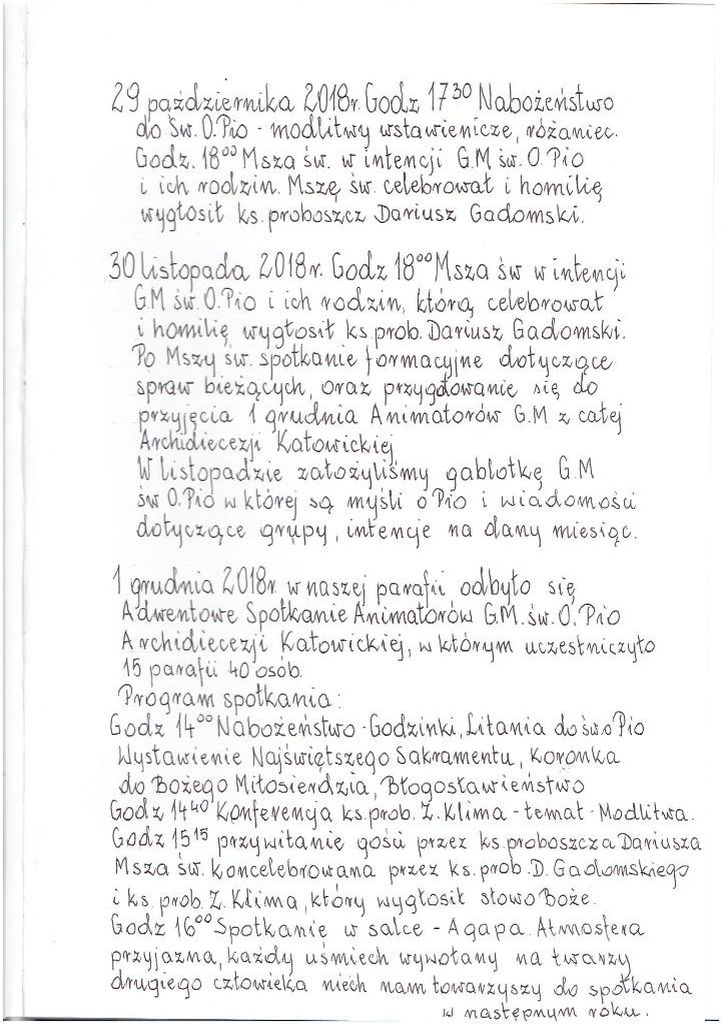 29 października 2018r. Godz 17³⁰ Nabożeństwo
do Św. O. Pio - modlitwy wstawiennicze, różaniec.
Godz. 18⁰⁰ Msza św. w intencji G.M św. O. Pio
i ich rodzin. Mszę św. celebrował i homilię
wygłosił ks. proboszcz Dariusz Gadomski.
30 listopada 2018r. Godz 18⁰⁰ Msza św w intencji
G.M św. O. Pio i ich rodzin, którą celebrował
i homilię wygłosił ks. prob. Dariusz Gadomski.
Po Mszy św. spotkanie formacyjne dotyczące
spraw bieżących, oraz przygotowanie się do
przyjęcia 1 grudnia Animatorów G.M z całej
Archidiecezji Katowickiej
W listopadzie założyliśmy gablotkę G.M
św O. Pio w której są myśli o Pio i wiadomości
dotyczące grupy, intencje na dany miesiąc.
1 grudnia 2018r. w naszej parafii odbyło się
Adwentowe Spotkanie Animatorów G.M. św. O. Pio
Archidiecezji Katowickiej, w którym uczestniczyło
15 parafii 40 osób.
Program spotkania:
Godz 14⁰⁰ Nabożeństwo - Godzinki, Litania do św o Pio
Wystawienie Najświętszego Sakramentu, Koronka
do Bożego Miłosierdzia, Błogosławieństwo
Godz 14⁴⁰ Konferencja ks. prob. Z. Klima - temat - Modlitwa.
Godz 15¹⁵ przywitanie gości przez ks. proboszcza Dariusza
Msza św. koncelebrowana przez ks. prob. D. Gadomskiego
i ks. prob. Z. Klima, który wygłosił słowo Boże.
Godz 16⁰⁰ Spotkanie w salce - Agapa. Atmosfera
przyjazna, każdy uśmiech wywołany na twarzy
drugiego człowieka niech nam towarzyszy do spotkania
w następnym roku.